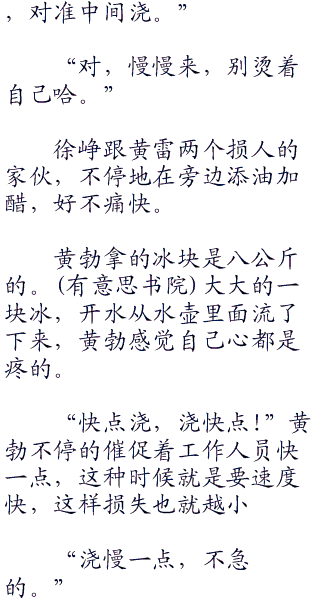 ，对准中间浇。”
“对，慢慢来，别烫着
自己哈。”
徐峥跟黄雷两个损人的
家伙，不停地在旁边添油加
醋，好不痛快。
黄勃拿的冰块是八公斤
的。(有意思书院)大大的一
块冰，开水从水壶里面流了
下来，黄勃感觉自己心都是
疼的。
“快点浇，浇快点!”黄
勃不停的催促着工作人员快
一点，这种时候就是要速度
快，这样损失也就越小
“浇慢一点，不急
的。”